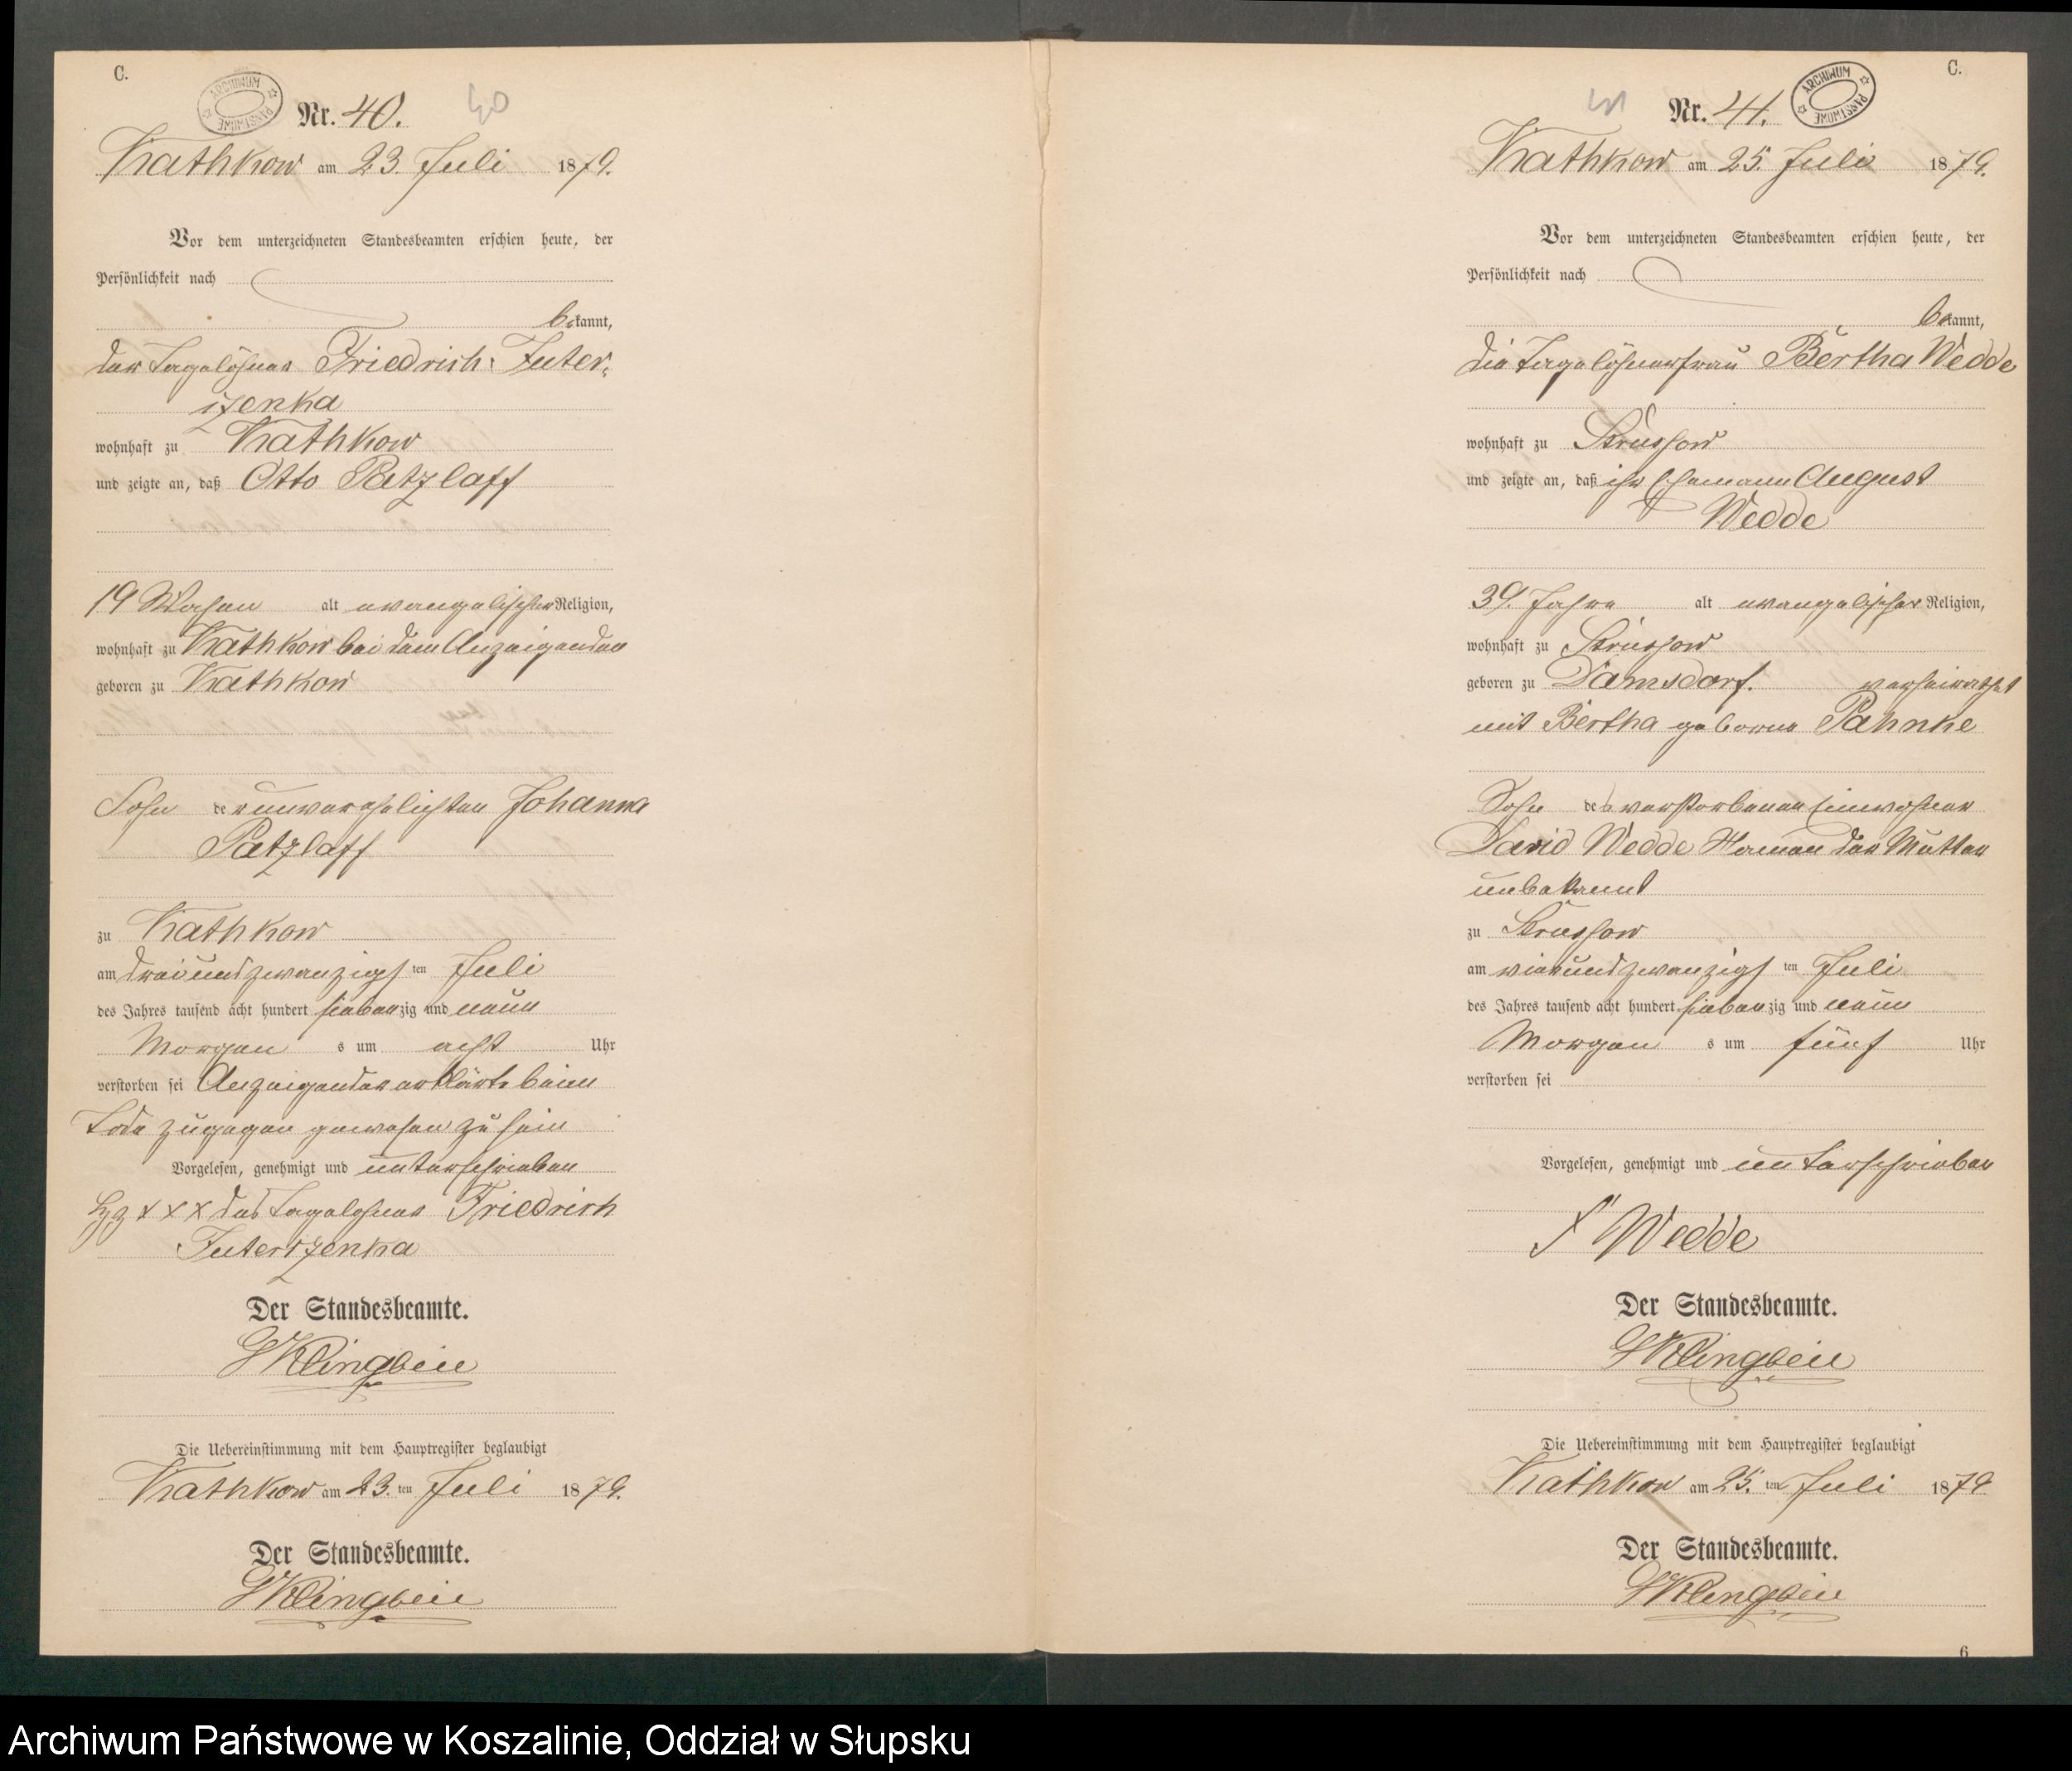 C.
ARCHIWUM PAŃSTWOWE
Nr. 40. 40
Kathkow am 23. Juli 1879.
Vor dem unterzeichneten Standesbeamten erschien heute, der
Persönlichkeit nach
bekannt,
der Tagelöhner Friedrich Juter-
zenka
wohnhaft zu Kathkow
und zeigte an, daß Otto Patzlaff
19 Wochen alt evangelischer Religion,
wohnhaft zu Kathkow bei dem Anzeigenden
geboren zu Kathkow
Sohn der unverehelichten Johanna
Patzlaff
zu Kathkow
am dreiundzwanzigsten Juli
des Jahres tausend acht hundert siebenzig und neun
Morgens um acht Uhr
verstorben sei Anzeigender erklärte beim
Tode zugegen gewesen zu sein
Vorgelesen, genehmigt und unterschrieben
Hzg x x x des Tagelöhners Friedrich
Juterzenka
Der Standesbeamte.
Klingbeil
Die Uebereinstimmung mit dem Hauptregister beglaubigt
Kathkow am 23. ten Juli 1879.
Der Standesbeamte.
Klingbeil
C.
ARCHIWUM PAŃSTWOWE
41 Nr. 41.
Kathkow am 25. Juli 1879.
Vor dem unterzeichneten Standesbeamten erschien heute, der
Persönlichkeit nach
bekannt,
die Tagelöhnerfrau Bertha Wedde
wohnhaft zu Strussow
und zeigte an, daß ihr Ehemann August
Wedde
39 Jahre alt evangelischer Religion,
wohnhaft zu Strussow
geboren zu Damsdorf. verheirathet
mit Bertha geborne Pahnke
Sohn des verstorbenen Einwohner
David Wedde Namen der Mutter
unbekannt
zu Strussow
am vierundzwanzigsten Juli
des Jahres tausend acht hundert siebenzig und neun
Morgens um fünf Uhr
verstorben sei
Vorgelesen, genehmigt und unterschrieben
Wedde
Der Standesbeamte.
Klingbeil
Die Uebereinstimmung mit dem Hauptregister beglaubigt
Kathkow am 25. ten Juli 1879
Der Standesbeamte.
Klingbeil
6
Archiwum Państwowe w Koszalinie, Oddział w Słupsku